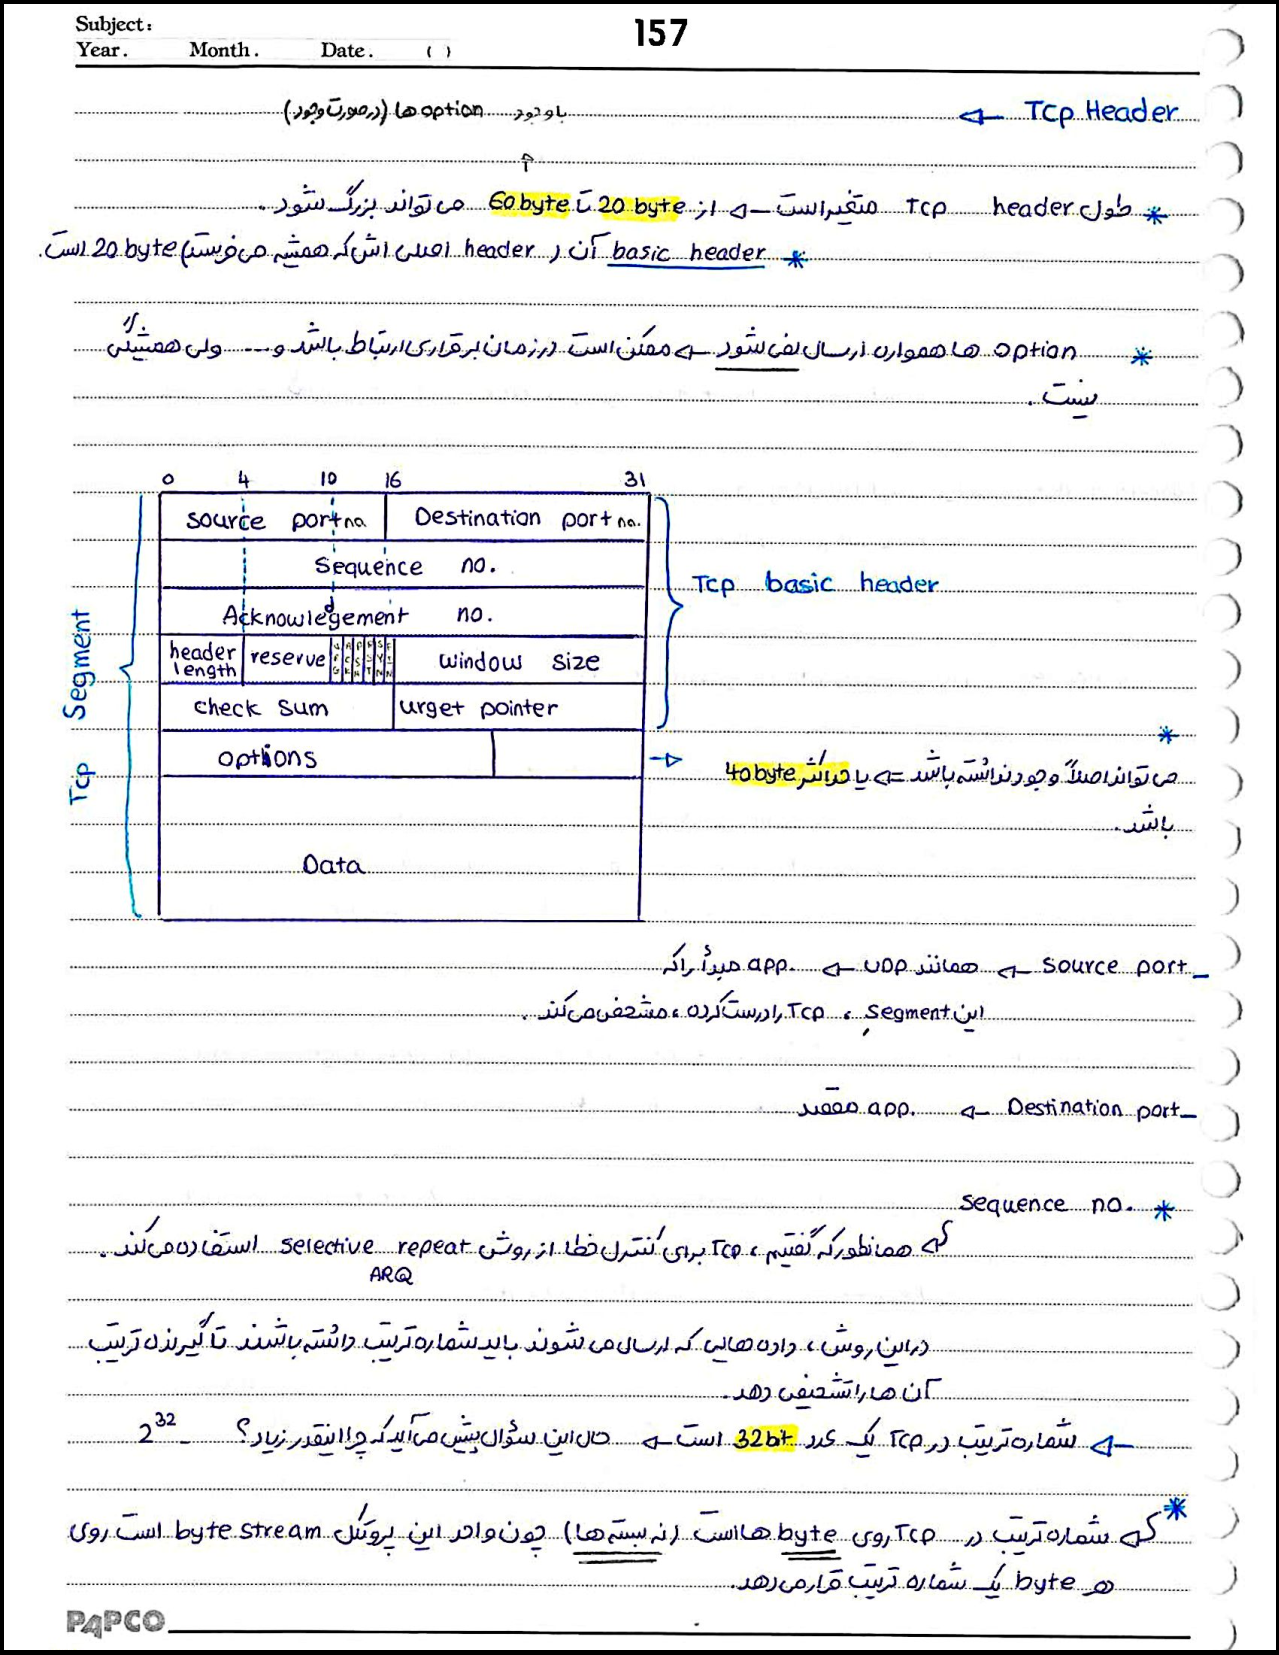 Subject:
157
Year. Month. Date. ( )
TCP Header ⇐
با وجود option ها (در صورت وجود)
↑
* طول TCP header متغیر است ⇐ از 20 byte تا 60 byte می تواند بزرگ شود.
* basic header آن (header اصلی اش که همیشه می فرستد) 20 byte است.
* option ها همواره ارسال نمی شود ⇐ ممکن است در زمان برقراری ارتباط باشد و ... ولی همیشگی
نیست.
0 4 10 16 31
source port no. Destination port no.
Sequence no.
TCP basic header
Acknowledgement no.
header length reserve URG ACK PSH RST SYN FIN window size
check sum urget pointer
TCP Segment
options
→ * می تواند اصلاً وجود نداشته باشد ⇐ یا حداکثر 40 byte
باشد.
Data
_ Source port ⇐ همانند UDP ⇐ app. مبدأ را که
این Segment، TCP را درست کرده، مشخص می کند.
_ Destination port ⇐ app. مقصد
* Sequence no.
که همانطور که گفتیم، TCP برای کنترل خطا از روش selective repeat استفاده می کند.
ARQ
در این روش، داده هایی که ارسال می شوند باید شماره ترتیب داشته باشند تا گیرنده ترتیب
آن ها را تشخیص دهد.
⇐ شماره ترتیب در TCP یک عدد 32 bit است ⇐ حال این سؤال پیش می آید که چرا اینقدر زیاد؟ _ 2^32
* که شماره ترتیب در TCP روی byte ها است (نه بسته ها) چون واحد این پروتکل byte stream است روی
هر byte یک شماره ترتیب قرار می دهد.
PAPCO